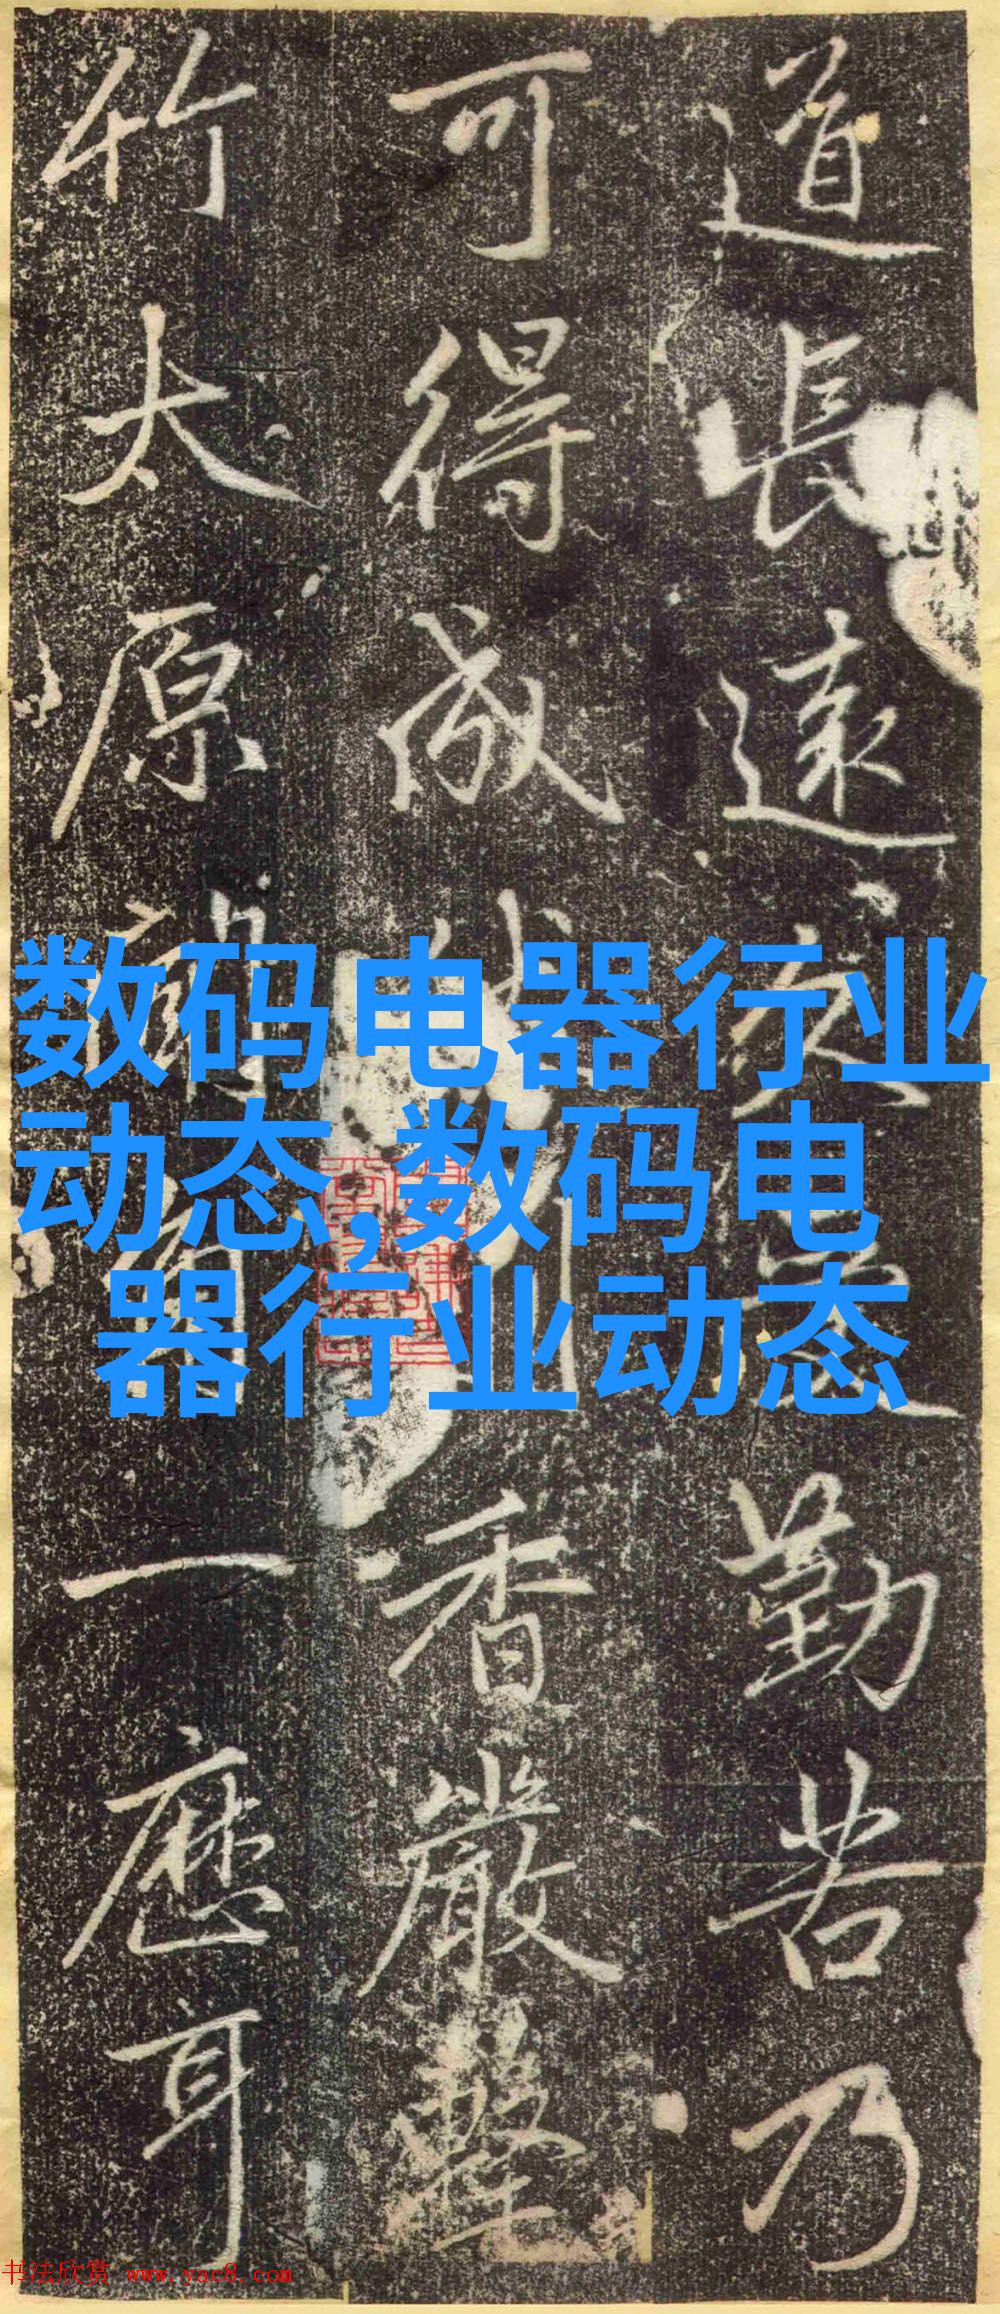 道長遠勤苦乃
可得成香嚴擊
竹太原一應耳
数码电器行业
动态,数码电
器行业动态
书法欣赏 www.yac8.com